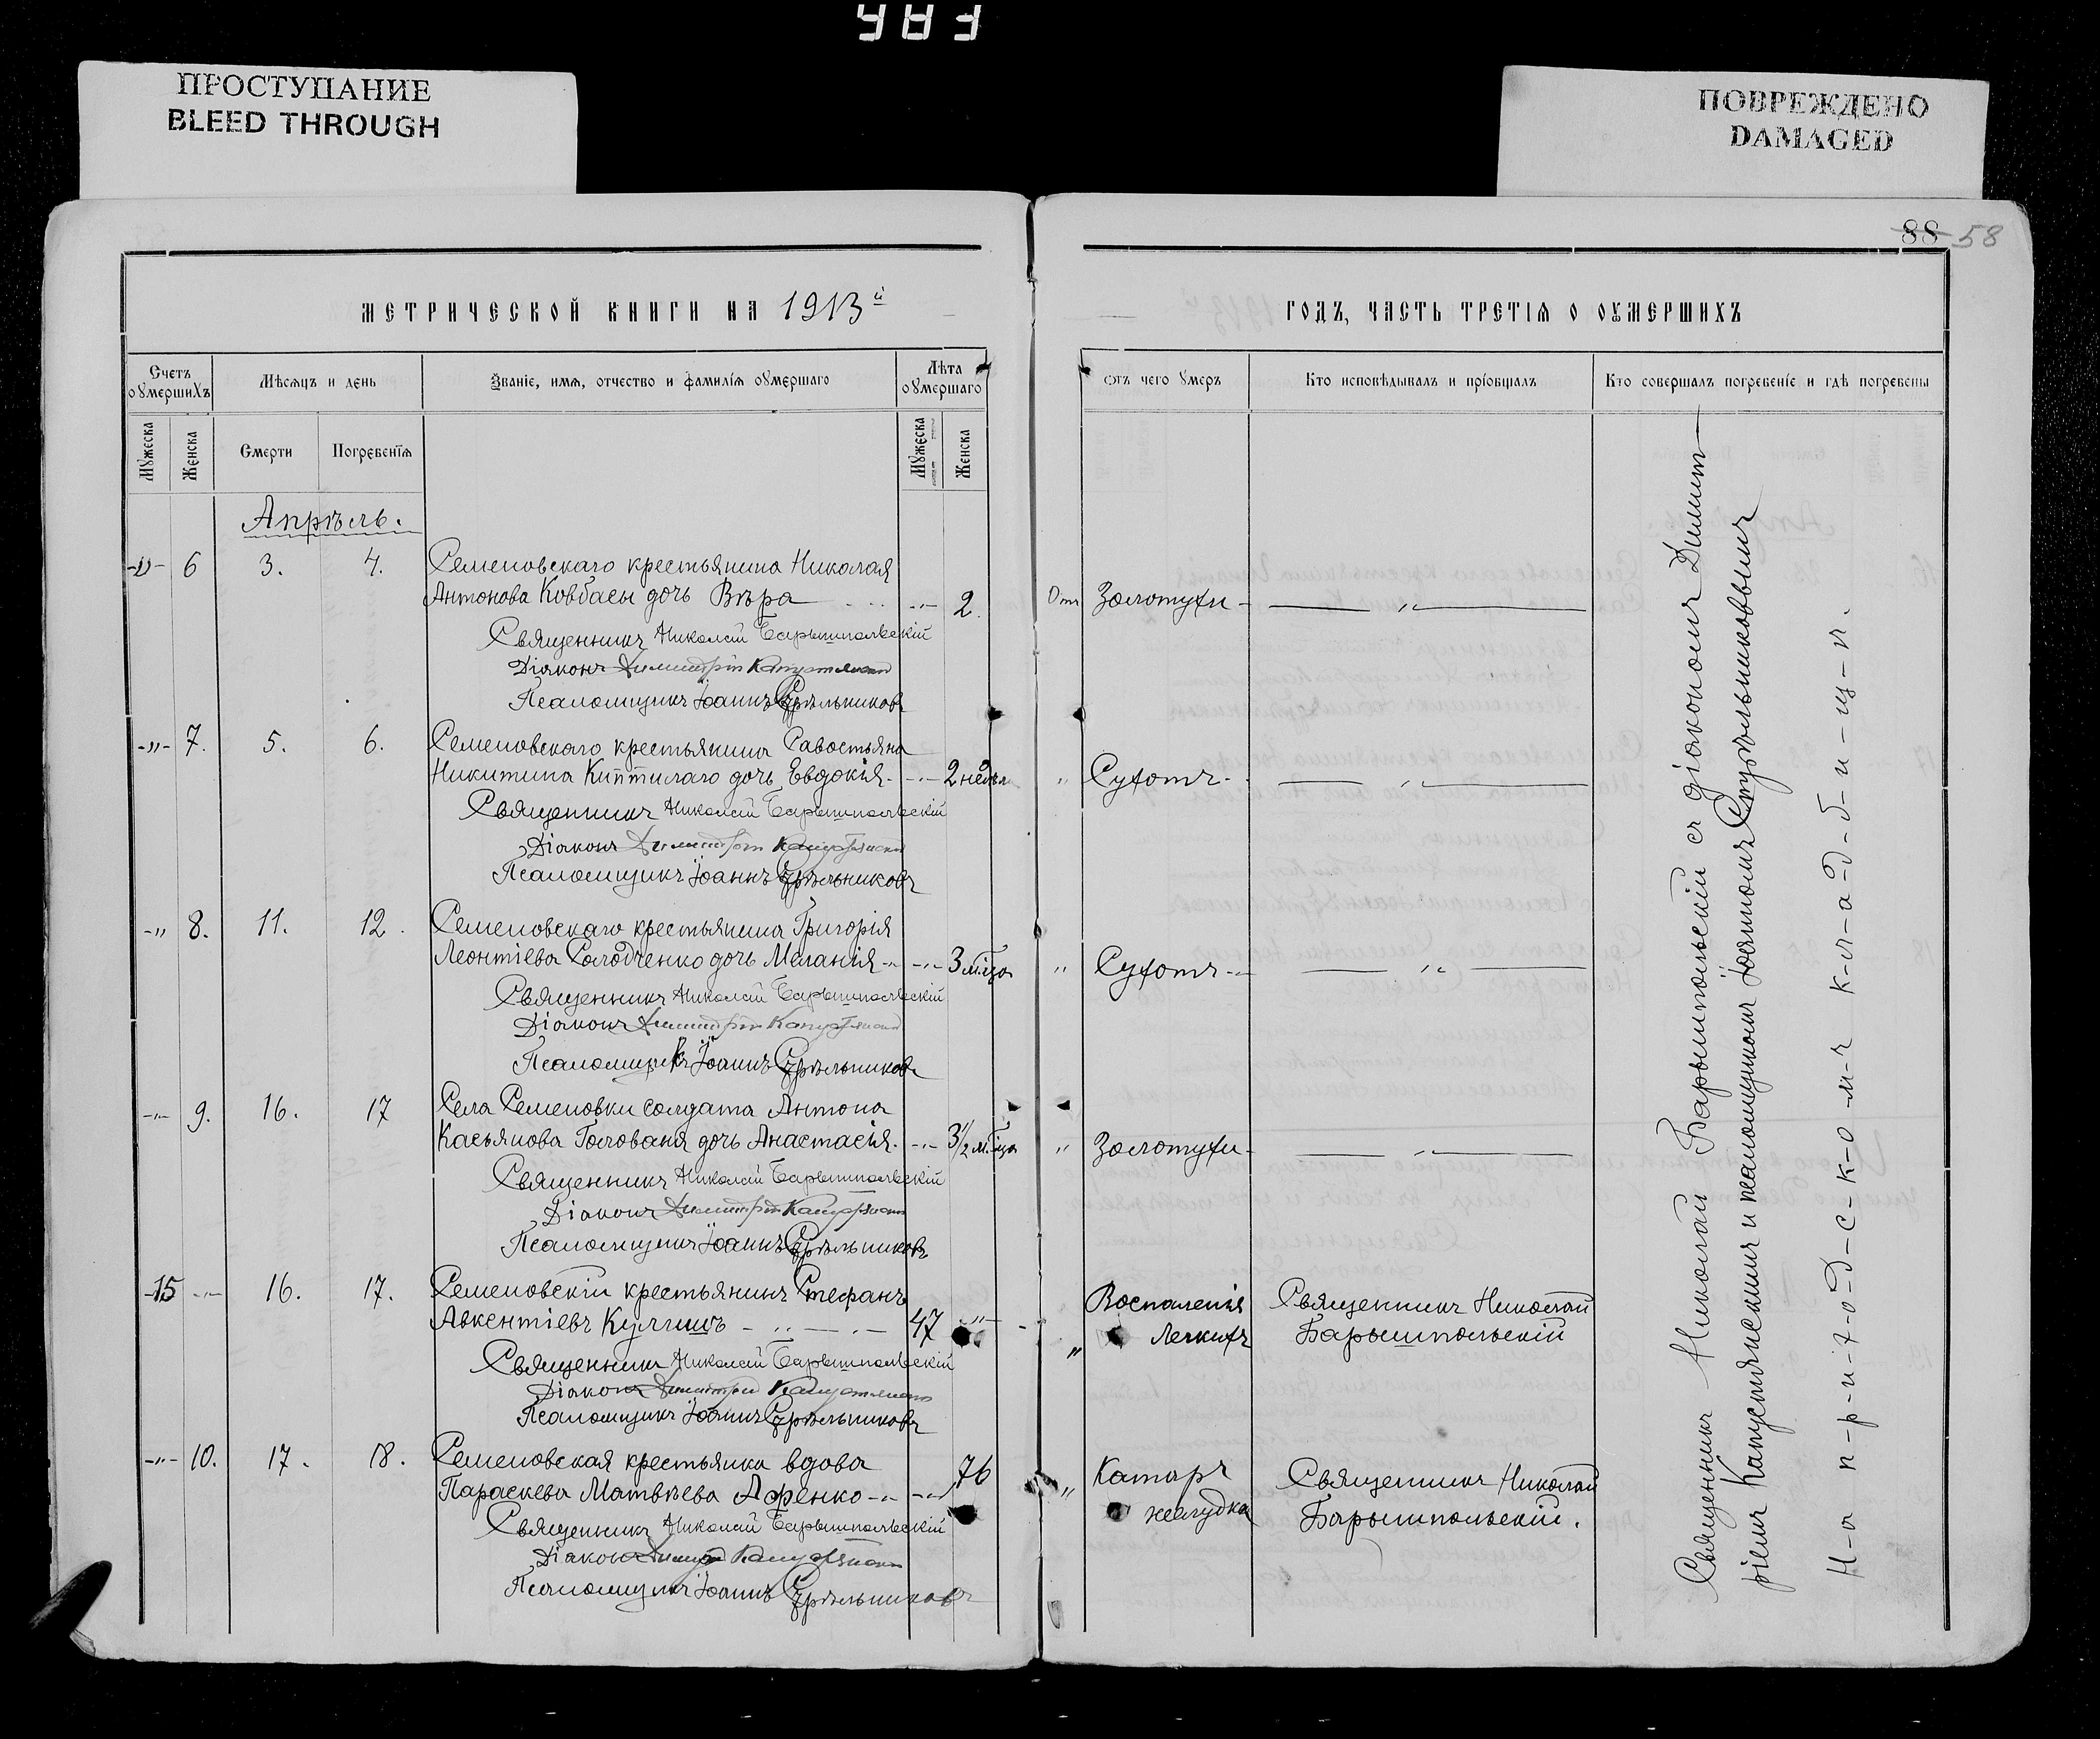 ПРОСТУПАНИЕ
BLEED THROUGH
ПОВРЕЖДЕНО
DAMAGED
88 58
МЕТРИЧЕСКОЙ КНИГИ НА 1913й
Счетъ оумершихъ
Мѣсяцъ и день
Званіе, имя, отчество и фамилія оумершаго
Лѣта оумершаго
Мужеска
Женска
Смерти
Погребенїя
Мужеска
Женска
Апрѣль.
-"- 6 3. 4. Семеновскаго крестьянина Николая
Антонова Ковбасы дочь Вѣра -"- 2.
Священникъ Николай Барышпольскій
Діаконъ Димитрій Капустянскій
Псаломщикъ Іоаннъ Стрѣльниковъ
-"- 7. 5. 6. Семеновскаго крестьянина Савостьяна
Никитина дочь Евдокія -"- 2 недѣл
Священникъ Николай Барышпольскій
Діаконъ Димитрій Капустянскій
Псаломщикъ Іоаннъ Стрѣльниковъ
-"- 8. 11. 12. Семеновскаго крестьянина Григорія
Леонтіева Солодченко дочь Меланія -"- -"- 3 мѣсца
Священникъ Николай Барышпольскій
Діаконъ Димитрій Капустянскій
Псаломщикъ Іоаннъ Стрѣльниковъ
-"- 9. 16. 17 Села Семеновки солдата Антона
Касьянова Голованя дочь Анастасія. -"- 3½ мѣсца
Священникъ Николай Барышпольскій
Діаконъ Димитрій Капустянскій
Псаломщикъ Іоаннъ Стрѣльниковъ
15 -"- 16. 17. Семеновскій крестьянинъ Стефанъ
Авкентіевъ Кулишъ -"- 47 -"-
Священникъ Николай Барышпольскій
Діаконъ Димитрій Капустянскій
Псаломщикъ Іоаннъ Стрѣльниковъ
-"- 10. 17. 18. Семеновская крестьянка вдова
Параскева Матвѣева Афенко -"- -"- 76
Священникъ Николай Барышпольскій
Діаконъ Димитрій Капустянскій
Псаломщикъ Іоаннъ Стрѣльниковъ
ГОДЪ, ЧАСТЬ ТРЕТІЯ О ОУМЕРШИХЪ
Отъ чего умеръ
Кто исповѣдывалъ и пріобщалъ
Кто совершалъ погребеніе и гдѣ погребены
Отъ Золотухи - — " —
" Сухотъ - — " —
" Сухотъ - — " —
" Золотухи - — " —
Воспаленія Священникъ Николай
" Легкихъ Барышпольскій
" Катаръ Священникъ Николай
желудка Барышпольскій.
Священникъ Николай Барышпольскій съ діакономъ Димит-
ріемъ Капустянскимъ и псаломщикомъ Іоанномъ Стрѣльниковымъ
Н-а п-р-и-х-о-д-с-к-о-м-ъ к-л-а-д-б-и-щ-ѣ.